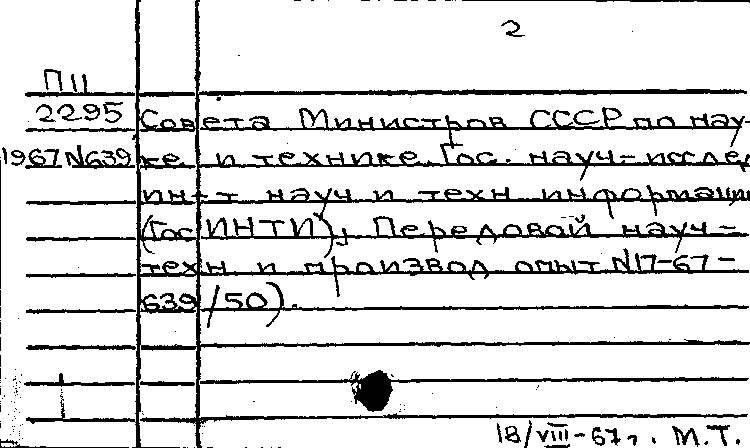 2
П11
2295 Совета Министров СССР по нау-
1967 N639 ке и технике. Гос. науч-исслед
ин-т науч и техн информации
(ГосИНТИ), Передовой науч-
техн и производ опыт N17-67-
639/50).
18/VIII-67г. М.Т.